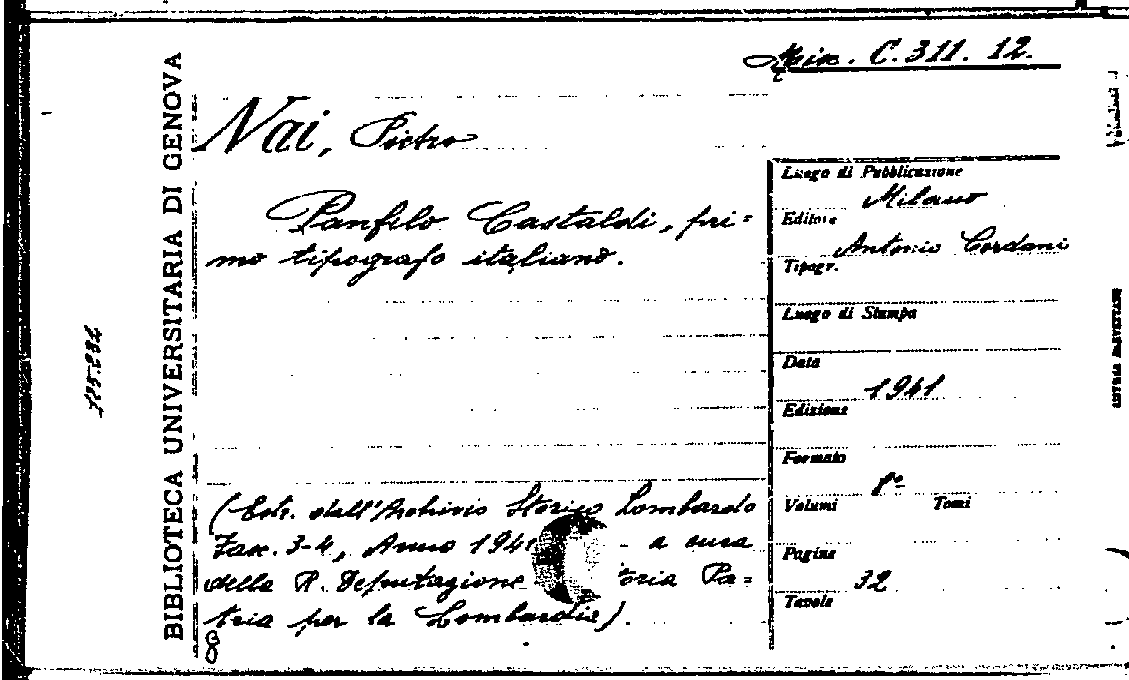 C. 311. 12.
BIBLIOTECA UNIVERSITARIA DI GENOVA
Nai, Pietro
Panfilo Castaldi, pri=
mo tipografo italiano.
(Estr. dall'Archivio Storico Lombardo
Fasc. 3-4, Anno 1941 - a cura
della R. Deputazione toria Pa=
tria per la Lombardia).
Luogo di Pubblicazione
Milano
Editore
Antonio Cordani
Tipogr.
Luogo di Stampa
Data
1941
Edizione
Formato
8°
Volumi Tomi
Pagine
32
Tavole